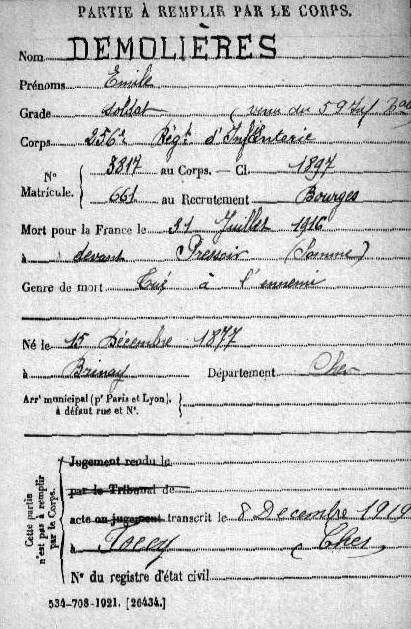 PARTIE À REMPLIR PAR LE CORPS.
Nom DEMOLIÈRES
Prénoms Emile
Grade soldat (venu du 59 Inf
Corps 256e Régt d'Infanterie
N° Matricule. { 3817 au Corps. — Cl. 1897
661 au Recrutement Bourges
Mort pour la France le 31 Juillet 1916
à devant Pressoir (Somme)
Genre de mort Tué à l'ennemi
Né le 15 Décembre 1877
à Brinay Département Cher
Arrt municipal (pr Paris et Lyon), à défaut rue et N°. {
Cette partie n'est pas à remplir par le Corps.
Jugement rendu le
par le Tribunal de
acte ou jugement transcrit le 8 Decembre 1919
à (Cher
N° du registre d'état civil
534-708-1921. [26434.]